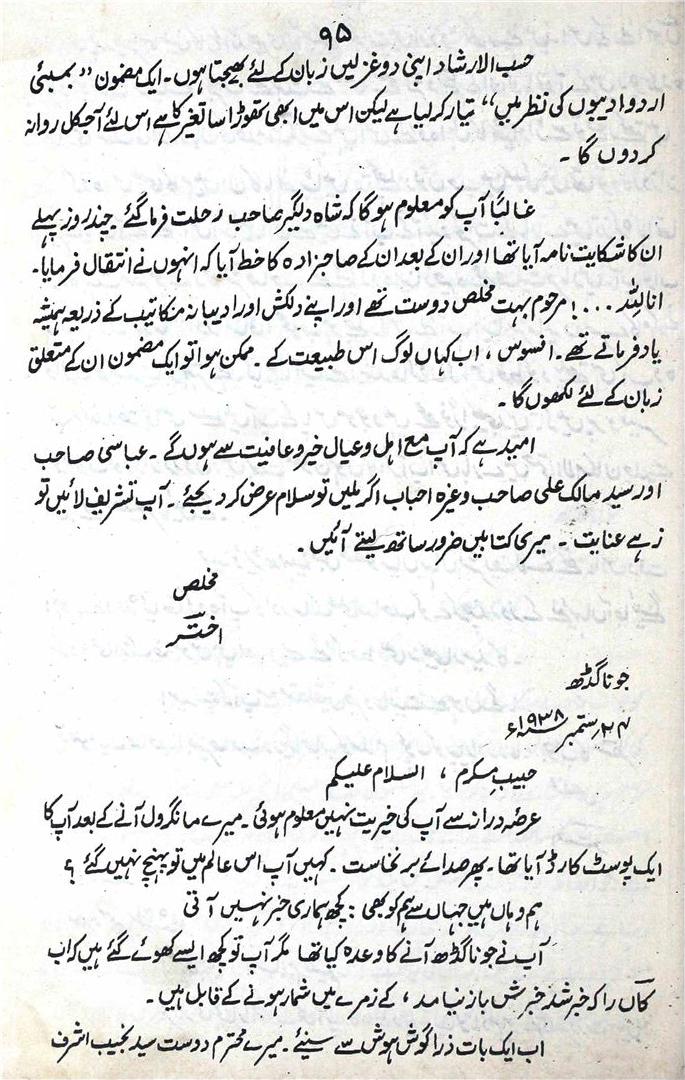 ۹۵
حسب الارشاد اپنی دو غزلیں زبان کے لئے بھیجتا ہوں۔ ایک مضمون "بمبئی
اردو ادیبوں کی نظر میں" تیار کر لیا ہے لیکن اس میں ابھی تھوڑا سا تغیر کا ہے اس لئے آجکل روانہ
کر دوں گا۔
غالباً آپ کو معلوم ہو گا کہ شاہ دلگیر صاحب رحلت فرما گئے۔ چند روز پہلے
ان کا شکایت نامہ آیا تھا اور ان کے بعد ان کے صاحبزادہ کا خط آیا کہ انہوں نے انتقال فرمایا۔
انا للہ ...! مرحوم بہت مخلص دوست تھے اور اپنے دلکش اور ادیبانہ مکاتیب کے ذریعہ ہمیشہ
یاد فرماتے تھے۔ افسوس، اب کہاں لوگ اس طبیعت کے۔ ممکن ہوا تو ایک مضمون ان کے متعلق
زبان کے لئے لکھوں گا۔
امید ہے کہ آپ مع اہل و عیال خیر و عافیت سے ہوں گے۔ عباسی صاحب
اور سید مالک علی صاحب وغیرہ احباب اگر ملیں تو سلام عرض کر دیجئے۔ آپ تشریف لائیں تو
زہے عنایت۔ میری کتابیں ضرور ساتھ لیتے آئیں۔
مخلص
اختر
جوناگڈھ
۲۴؍ستمبر ۱۹۳۸ء
حبیب مکرم، السلام علیکم
عرصہ دراز سے آپ کی خیریت نہیں معلوم ہوئی۔ میرے مانگرول آنے کے بعد آپ کا
ایک پوسٹ کارڈ آیا تھا۔ پھر صدائے برنخاست۔ کہیں آپ اس عالم میں تو پہنچ نہیں گئے ؟
ہم وہاں ہیں جہاں سے ہم کو بھی : کچھ ہماری خبر نہیں آتی
آپ نے جوناگڈھ آنے کا وعدہ کیا تھا مگر آپ تو کچھ ایسے کھوئے گئے ہیں کہ اب
کاں را کہ خبر شد خبرش باز نیامد، کے زمرے میں شمار ہونے کے قابل ہیں۔
اب ایک بات ذرا گوش ہوش سے سنیئے۔ میرے محترم دوست سید نجیب اشرف